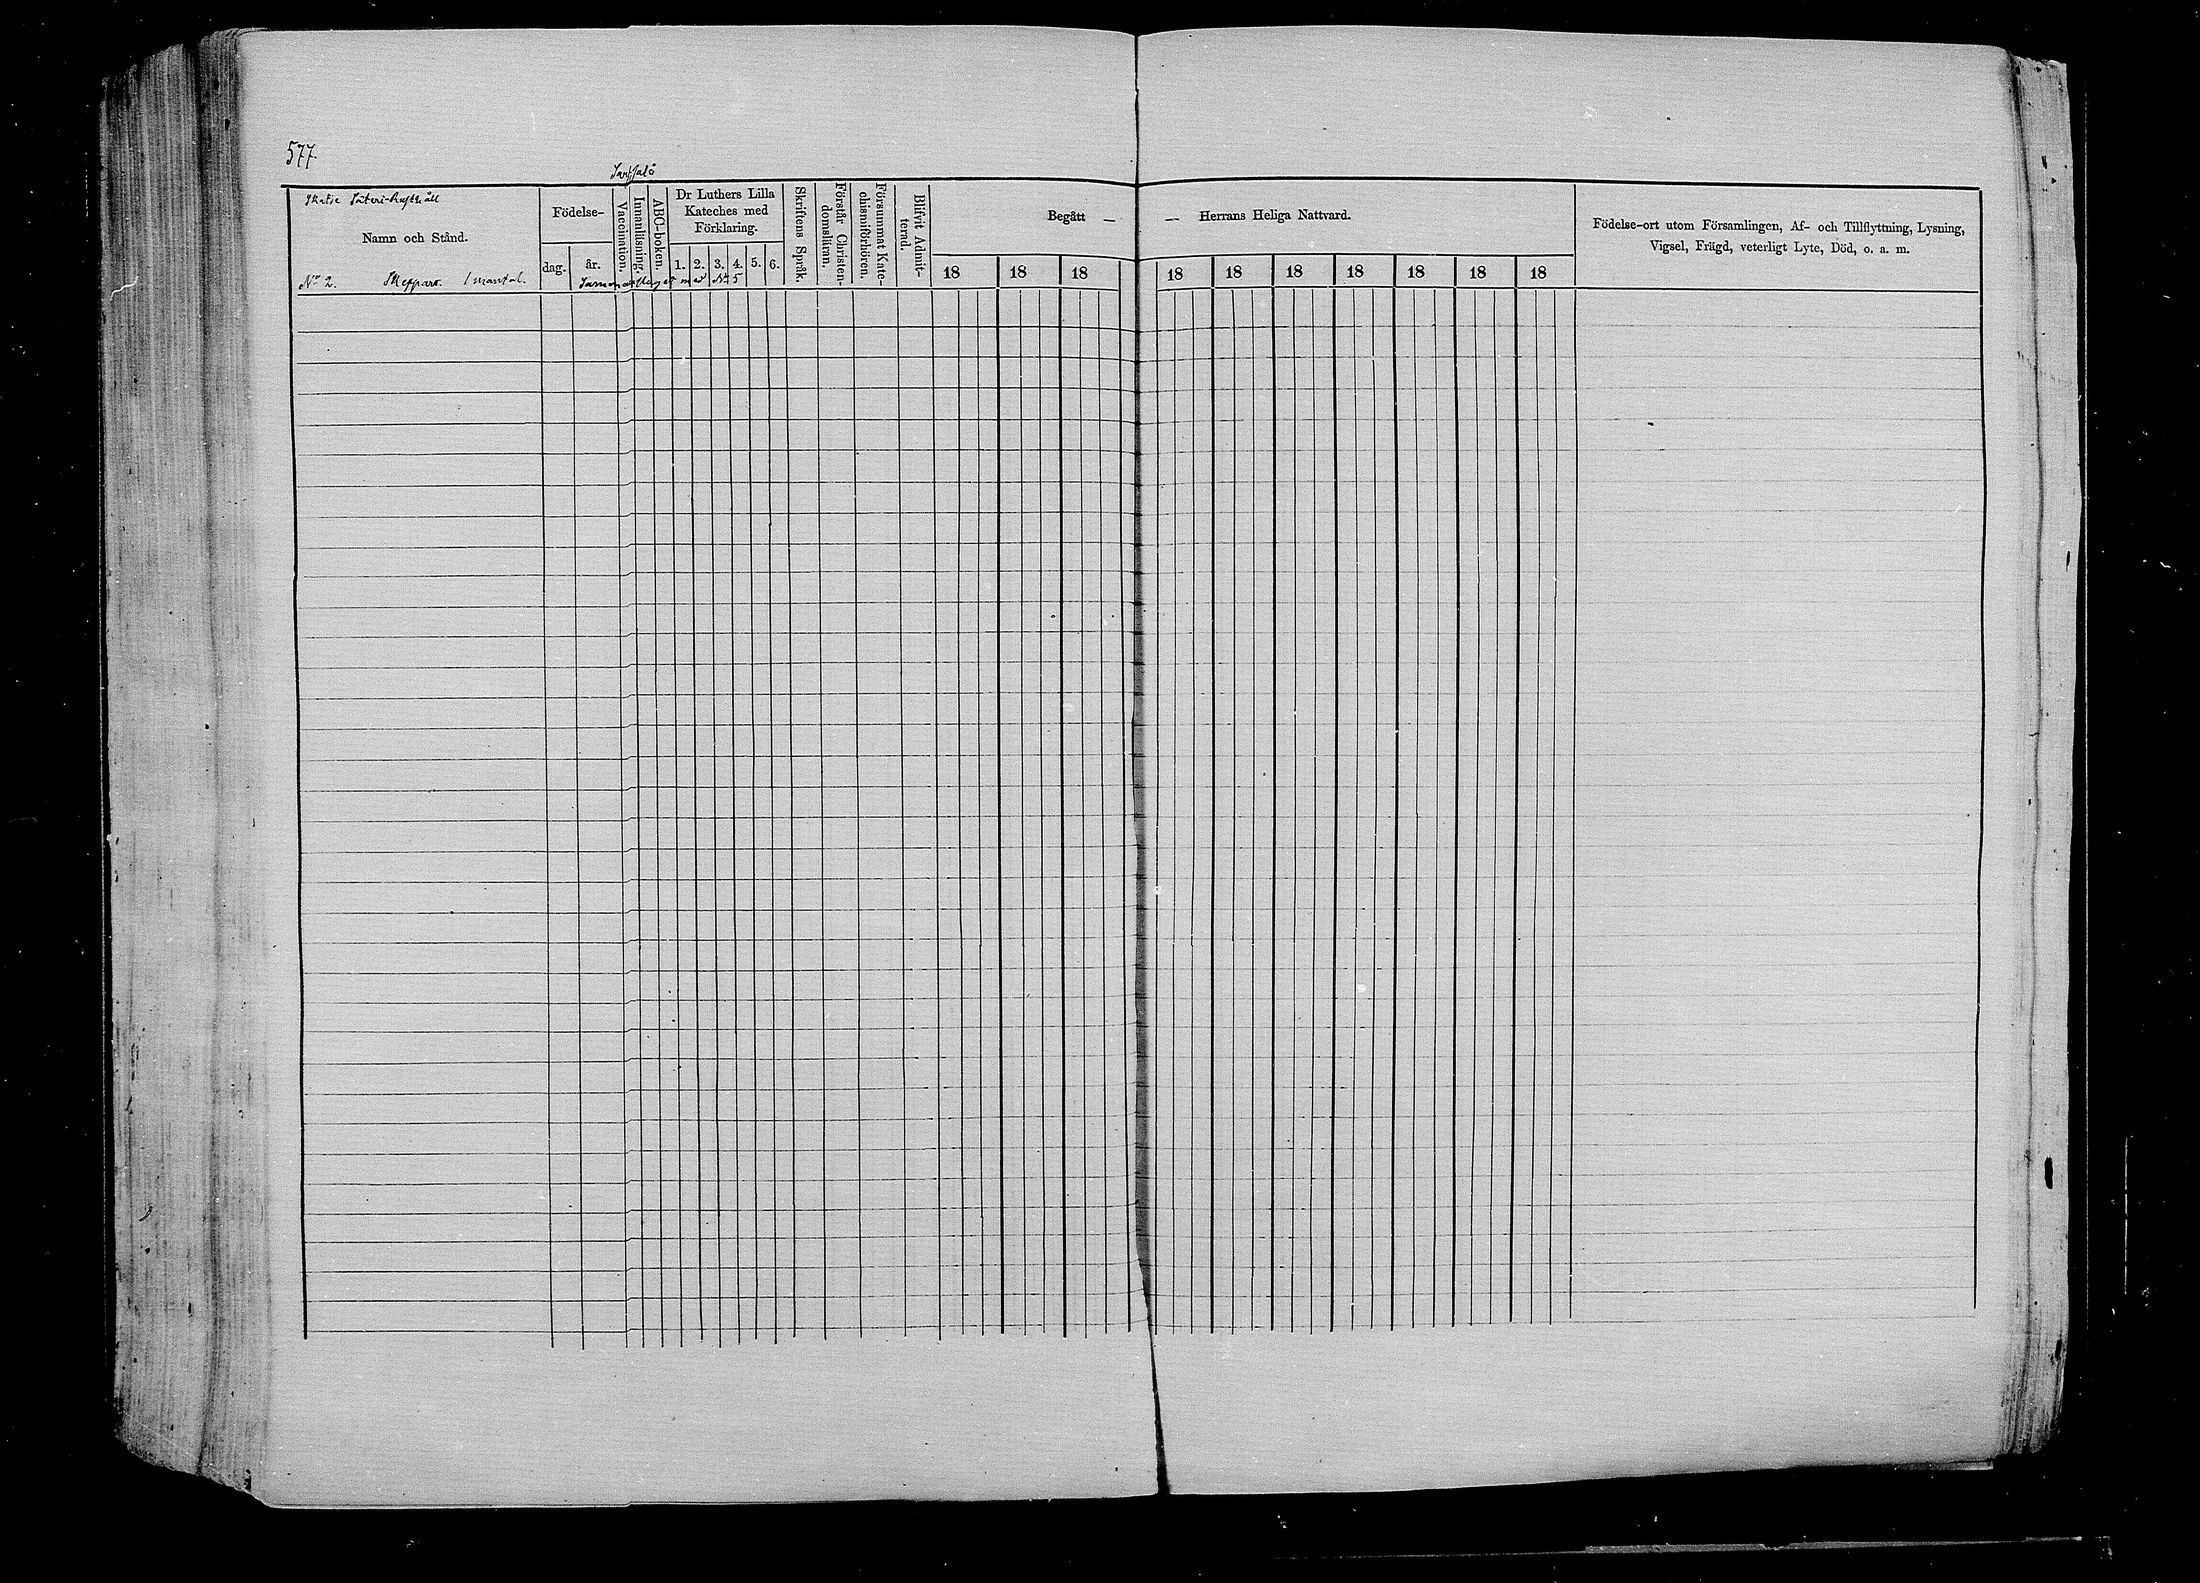 577.
Sarfsalö
Skatte Säteri-Rusthåll
Namn och Stånd.
No 2. Skeppars. 1 mantal.
Födelse-
dag. år.
Sammanslaget med No 5
Vaccination.
Innanläsning.
ABC-boken.
Dr Luthers Lilla
Kateches med
Förklaring.
1. 2. 3. 4. 5. 6.
Skriftens Språk.
Förstår Christen-
domsläran.
Försummat Kate-
chismiförhören.
Blifvit Admit-
terad.
Begått — — Herrans Heliga Nattvard.
18 18 18 18 18 18 18 18 18 18
Födelse-ort utom Församlingen, Af- och Tillflyttning, Lysning,
Vigsel, Frägd, veterligt Lyte, Död, o. a. m.